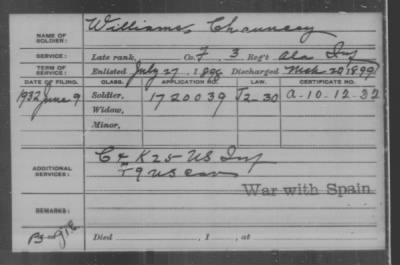 NAME OF SOLDIER: Williams, Chauncey
SERVICE: Late rank, Co. F 3 Reg't Ala Inf
TERM OF SERVICE: Enlisted July 27, 1898 Discharged Mch 20 1899
DATE OF FILING. CLASS. APPLICATION NO. LAW. CERTIFICATE NO.
1932 June 9 Soldier, 1720039 J2-30 A-10-12-32
Widow,
Minor,
ADDITIONAL SERVICES: C & K 25 US Inf
F 9 US Cav
War with Spain.
REMARKS:
Died , 1 , at